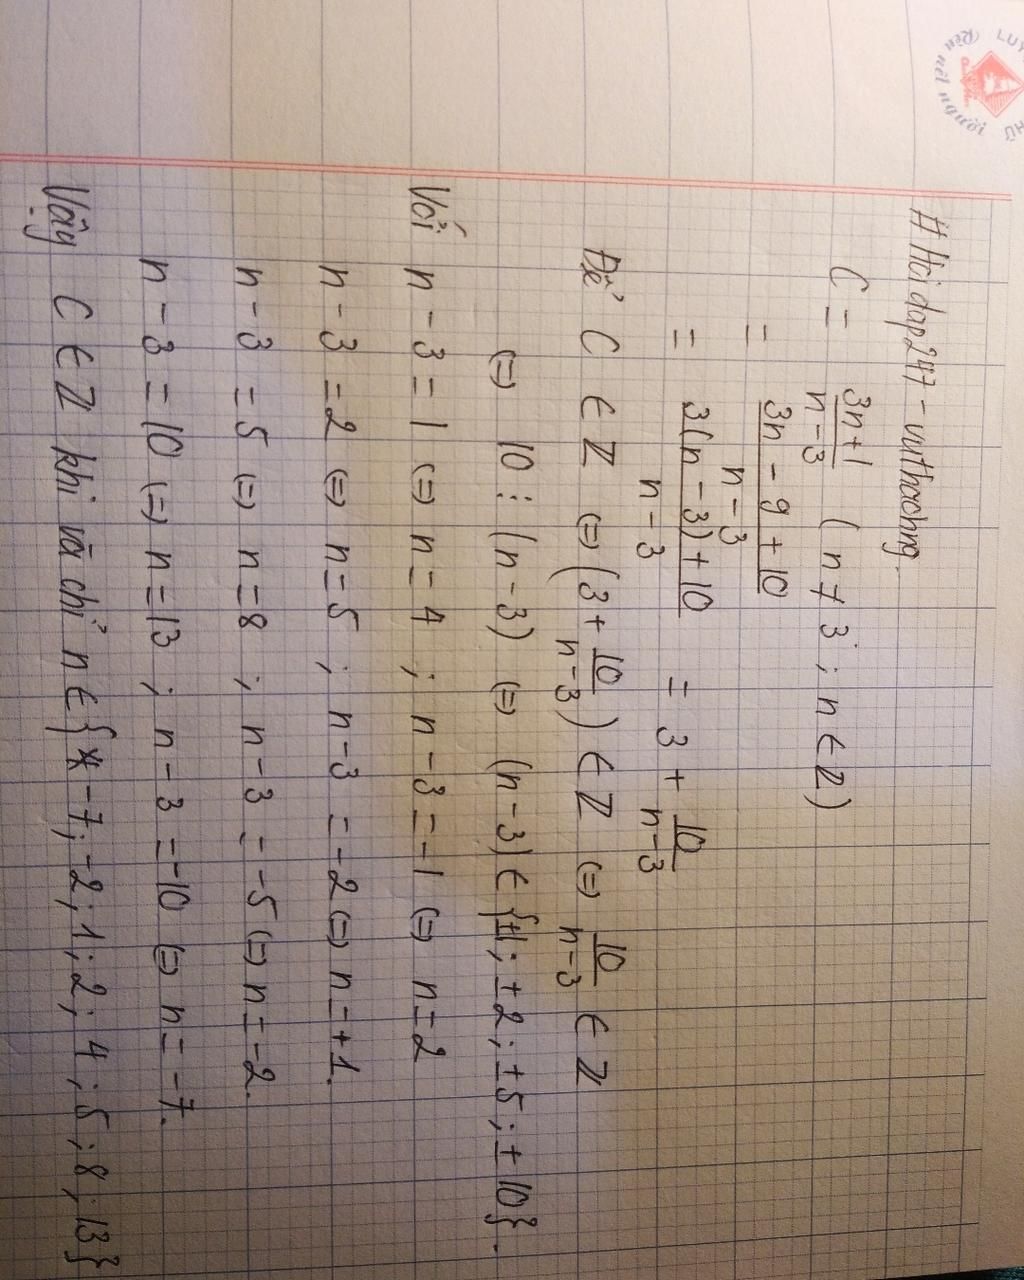 Rèn nét người
# Hoidap247 - vuthachng.
C = \frac{3n+1}{n-3} (n ≠ 3 ; n ∈ Z)
= \frac{3n - 9 + 10}{n-3}
= \frac{3(n-3)+10}{n-3} = 3 + \frac{10}{n-3}
Để C ∈ Z ⇔ (3 + \frac{10}{n-3}) ∈ Z ⇔ \frac{10}{n-3} ∈ Z
⇔ 10 ⋮ (n-3) ⇔ (n-3) ∈ {±1; ±2; ±5; ±10}.
Với n-3 = 1 ⇔ n = 4 ; n-3 = -1 ⇔ n = 2
n-3 = 2 ⇔ n = 5 ; n-3 = -2 ⇔ n = +1.
n-3 = 5 ⇔ n = 8 ; n-3 = -5 ⇔ n = -2.
n-3 = 10 ⇔ n = 13 ; n-3 = -10 ⇔ n = -7.
Vậy C ∈ Z khi và chỉ n ∈ { -7; -2; 1; 2; 4; 5; 8; 13}